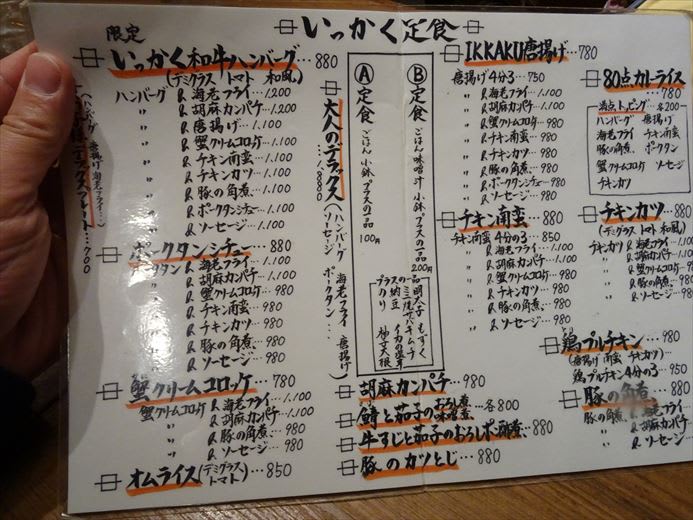 いっかく定食
限定
いっかく和牛ハンバーグ…880
(デミグラス トマト 和風)
ハンバーグ & 海老フライ…1,200
〃 & 胡麻カンパチ…1,200
〃 & 唐揚げ…1,100
〃 & 蟹クリームコロッケ…1,100
〃 & チキン南蛮…1,100
〃 & チキンカツ…1,100
〃 & 豚の角煮…1,100
〃 & ポークタンシチュー…1,100
〃 & ソーセージ…1,100
ポークタンシチュー…880
タン & 海老フライ…1,100
〃 & 胡麻カンパチ…1,100
〃 & 蟹クリームコロッケ…980
〃 & チキン南蛮…980
〃 & チキンカツ…980
〃 & 豚の角煮…980
〃 & ソーセージ…980
蟹クリームコロッケ…780
蟹クリームコロッケ & 海老フライ…1,100
〃 & 胡麻カンパチ…1,100
〃 & 豚の角煮…980
〃 & ソーセージ…980
オムライス(デミグラス トマト)…850
デラックスプレート…700
(ハンバーグ 唐揚げ 海老フライ…)
大人のデラックス…1,880
(ハンバーグ 海老フライ 唐揚げ
ソーセージ ポークタン…)
Ⓐ定食
ごはん 小鉢 プラスの一品
100円
Ⓑ定食
ごはん 味噌汁 小鉢 プラスの一品
200円
プラスの一品
明太子 もずく
キムチ
納豆 イカの塩辛
のり 柚子大根
胡麻カンパチ
鯖と茄子のおろし煮 味噌煮…各800
牛すじと茄子のおろしポン酢煮…880
豚のカツとじ…880
IKKAKU唐揚げ…780
唐揚げ4分の3…750
〃 & 海老フライ…1,100
〃 & 胡麻カンパチ…1,100
〃 & 蟹クリームコロッケ…980
〃 & チキン南蛮…980
〃 & チキンカツ…980
〃 & 豚の角煮…980
〃 & ポークタンシチュー…980
〃 & ソーセージ…980
チキン南蛮…880
チキン南蛮4分の3…850
〃 & 海老フライ…1,100
〃 & 胡麻カンパチ…1,100
〃 & 蟹クリームコロッケ…980
〃 & チキンカツ…980
〃 & 豚の角煮…980
〃 & ソーセージ…980
80点カレーライス
…780
満点トッピング…各200
ハンバーグ 唐揚げ
海老フライ チキン南蛮
豚の角煮 ポークタン
蟹クリームコロッケ ソーセージ
チキンカツ
チキンカツ…880
(デミグラス トマト 和風)
チキンカツ & 海老フライ…1,100
〃 & 胡麻カンパチ…1,100
〃 & 蟹クリームコロッケ…980
〃 & 豚の角煮…980
〃 & ソーセージ…980
鶏プルチキン…980
(唐揚げ 南蛮 チキンカツ)
鶏プルチキン4分の3…950
豚の角煮…880
豚の角煮 & 海老フライ…1,100
〃 & 胡麻カンパチ…1,100
〃 & ソーセージ…980